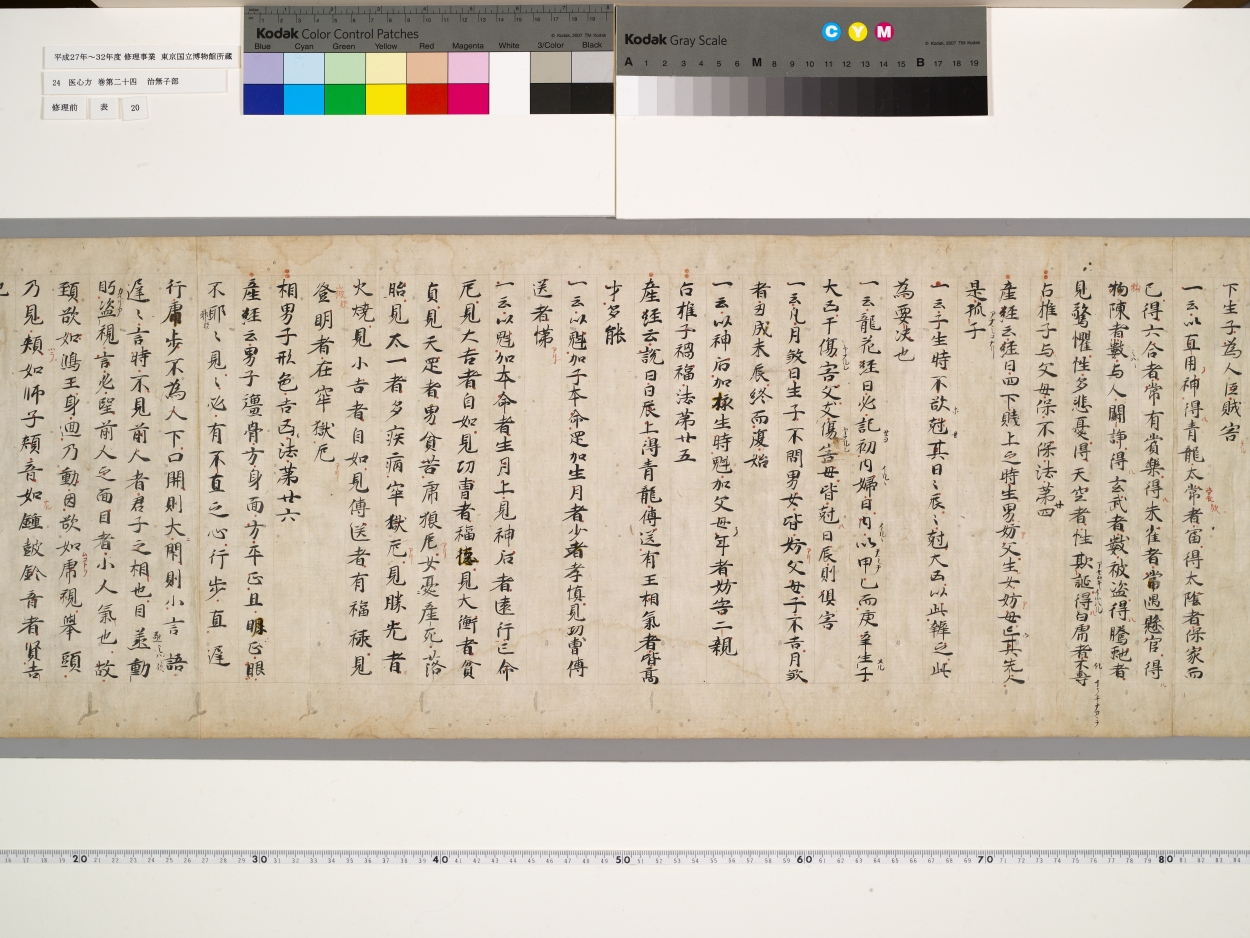 平成27年～32年度 修理事業 東京国立博物館所蔵
24 医心方 巻第二十四 治無子部
修理前 表 20
Kodak Color Control Patches
Blue Cyan Green Yellow Red Magenta White 3/Color Black
Kodak Gray Scale
C Y M
A 1 2 3 4 5 6 M 8 9 10 11 12 13 14 15 B 17 18 19
下生子為人臣賊害
一云以直用神得青龍太常者富得太陰者保家而
已得六合者常有賞樂得朱雀者當遇懸官得
物陳者數与人闘諍得玄武者數被盗得騰虵者
見驚懼性多悲憂得天空者性欺誕得白虎者不壽
占推子与父母保不保法第廿四
産經云經日四下賤上之時生男妨父生女妨母亡其先人
是孤子
一云子生時不欲尅其日之辰之尅大凶以此辨之此
為要决也
一云龍花經日必記初内婦日内以甲己而庚辛生子
大凶干傷害父支傷害母皆尅日辰則俱害
一云凡月煞日生子不問男女皆妨父母子不吉月煞
者丑戌未辰終而復始
一云以神后加拯生時魁加父母年者妨害二親
占推子禍福法第廿五
産經云說曰日辰上得青龍傳送有王相氣者皆高
才多能
一云以魁加子本命足加生月者少者孝慎見功曹傳
送者悌
一云以魁加本命者生月上見神后者遠行亡命
厄見大吉者自如見功曹者福德見大衝者貧
貞見天足者男貧苦虎狼厄女憂産死落
胎見太一者多疾病牢獄厄見勝先者
火燒見小吉者自如見傳送者有福祿見
登明者在牢獄厄
相男子形色吉凶法第廿六
産經云男子彊骨方身面方平正且眼正眼
不耶之見之必有不直之心行步直遲
行庸步不為人下口開則大閇則小言語
遲之言時不見前人者君子之相也目羗動
眄盗視言必堅前人之面目者小人氣也故
頸欲如鴻王身迊乃動因欲如虎視舉頭
乃見頬如師子頬音如鍾皷鈴音者賢吉
也